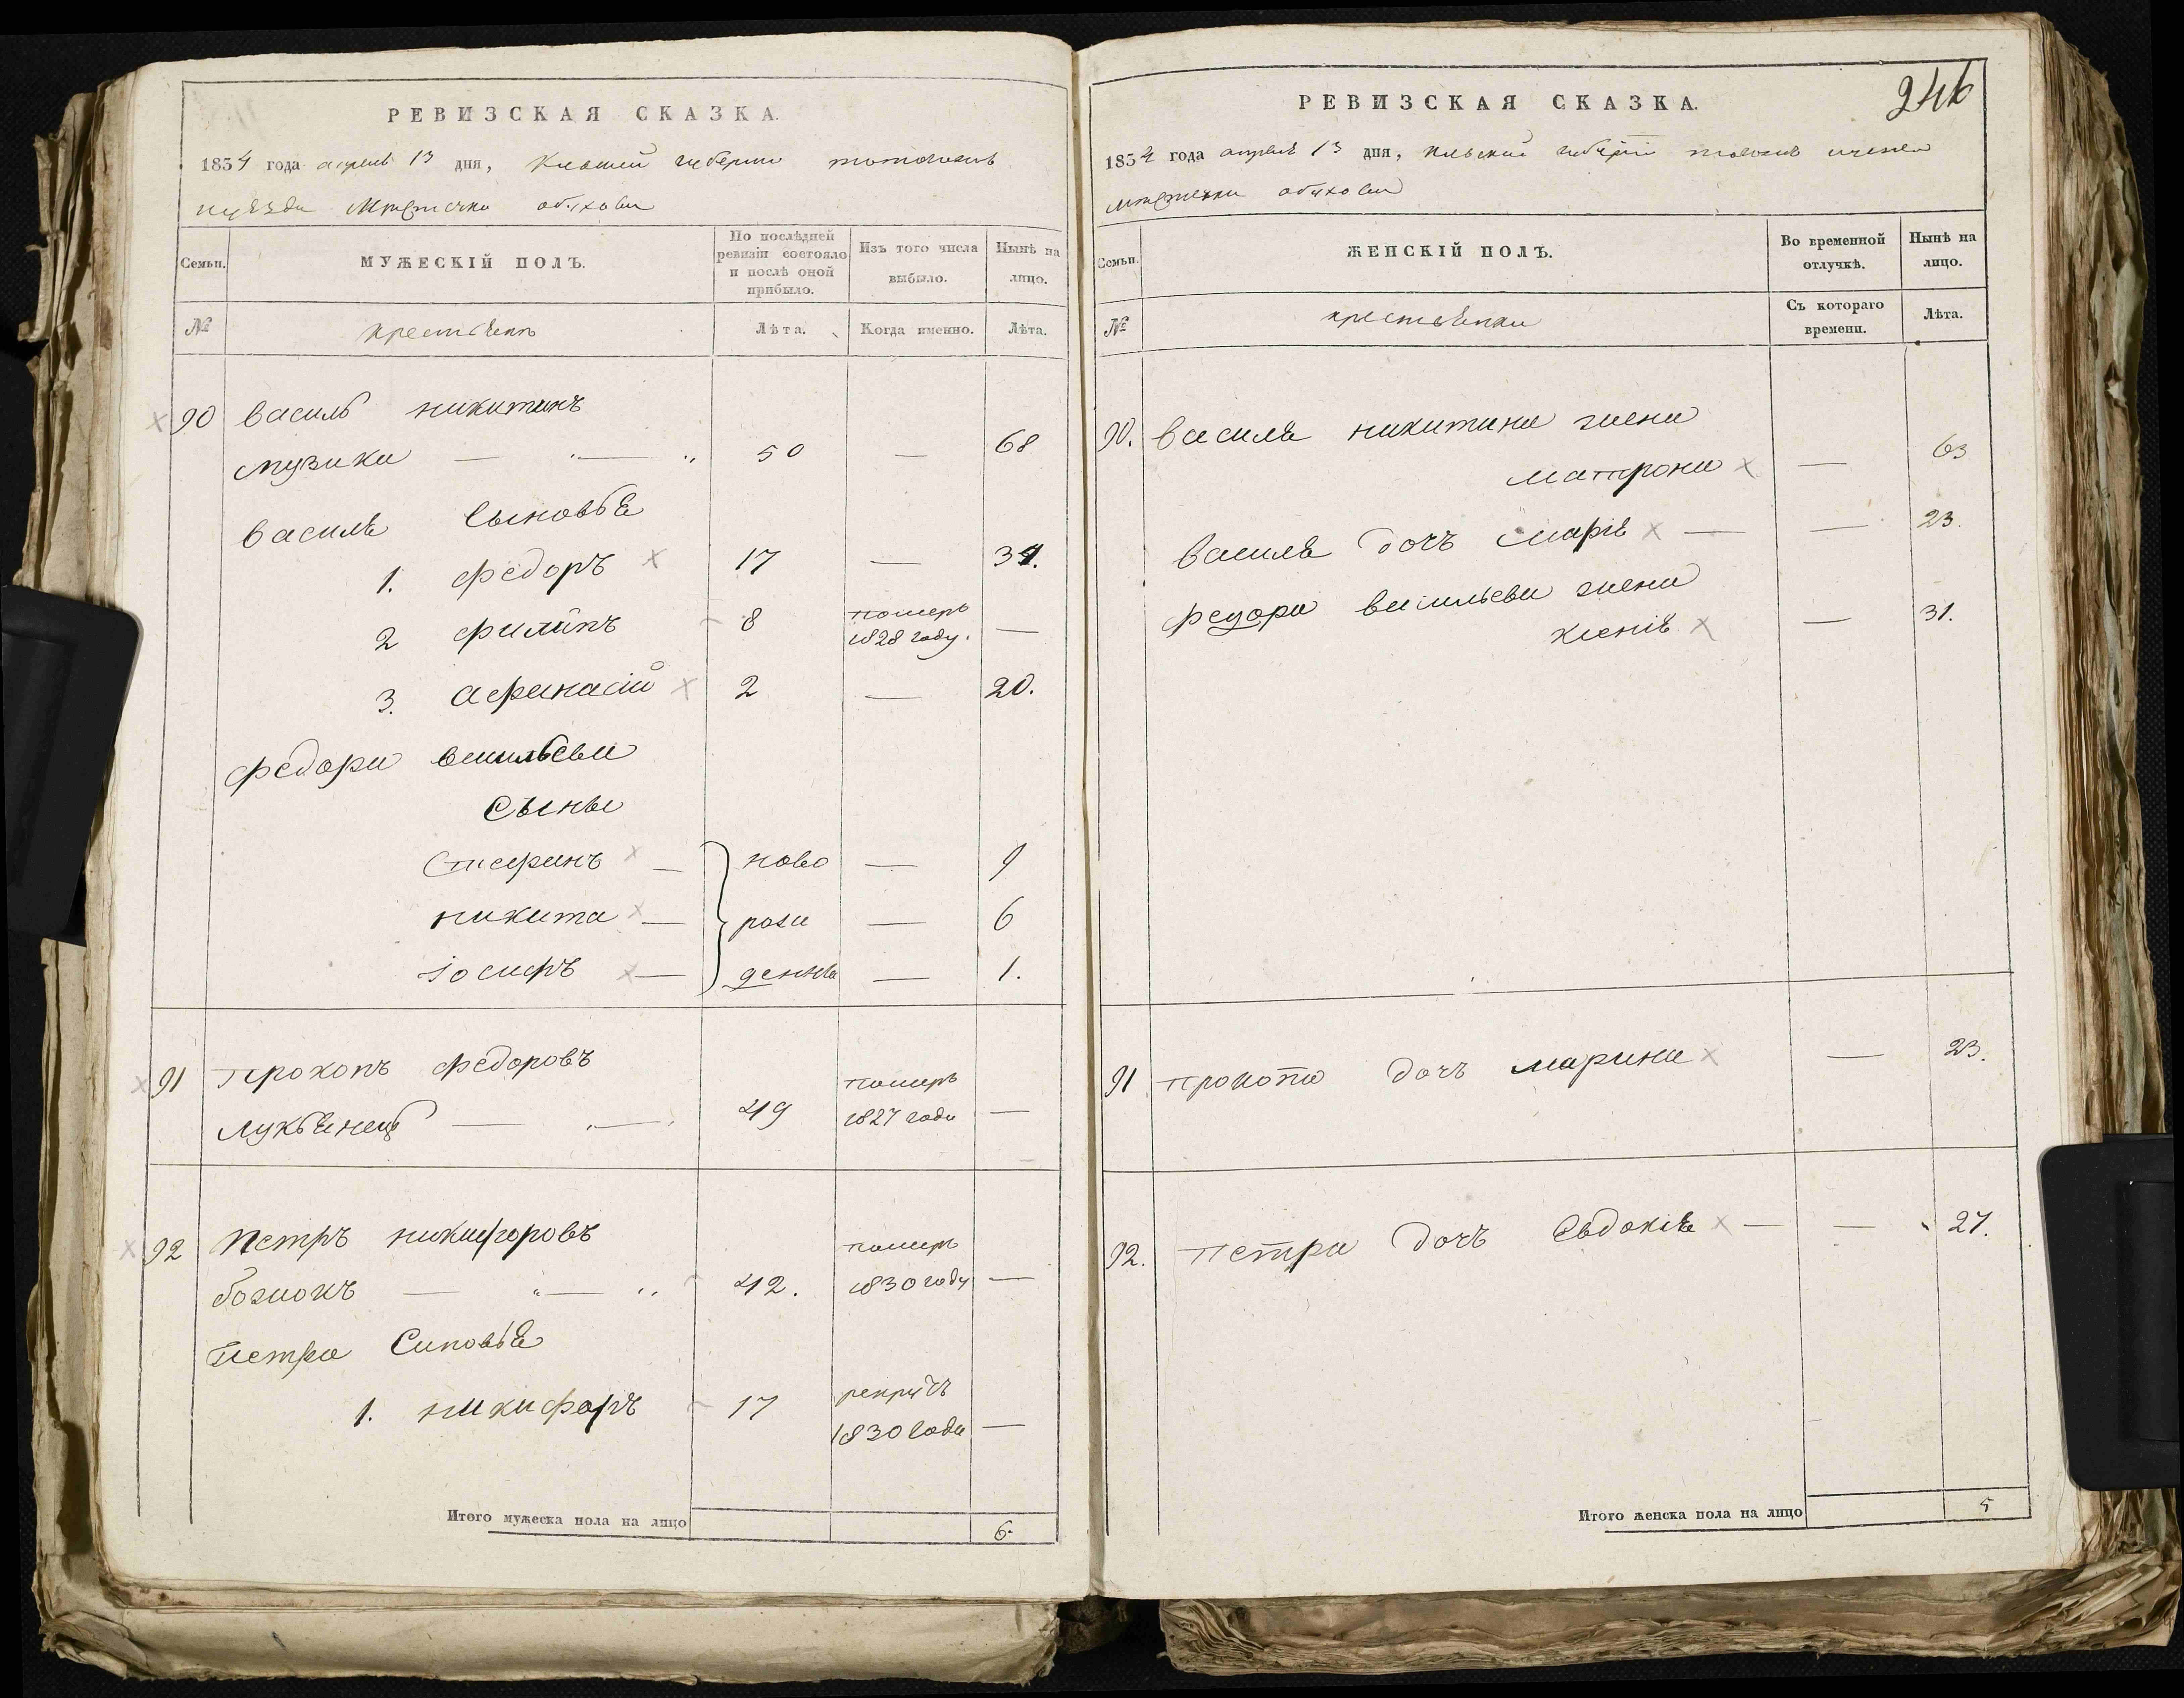 РЕВИЗСКАЯ СКАЗКА.
1834 года апреля 13 дня, Киевской губернии
уезда Местечка обухова
Семьи.
МУЖЕСКІЙ ПОЛЪ.
По послѣдней ревизіи состояло и послѣ оной прибыло.
Изъ того числа выбыло.
Нынѣ на лицо.
№
крестьяне
Лѣта.
Когда именно.
Лѣта.
90 василь никитинъ
музика — 50 — 68
василя сыновья
1. федоръ 17 — 34.
2 филипъ 8 померъ 1828 году. —
3. афанасій 2 — 20.
федора васильева
сыны
стефанъ — ново — 9
никита — рож — 6
іосифъ — денны — 1.
91 прокопъ федоровъ
лукъянец — 49 померъ 1827 года —
92 петръ никифоровъ
42. померъ 1830 году —
петра синовья
1. никифоръ 17 рекрутъ 1830 года —
Итого мужеска пола на лицо 6.
246
РЕВИЗСКАЯ СКАЗКА.
1834 года апреля 13 дня, киевской губерніи
местечка обухова
Семьи.
ЖЕНСКІЙ ПОЛЪ.
Во временной отлучкѣ.
Нынѣ на лицо.
№
крестьянки
Съ котораго времени.
Лѣта.
90. василя никитина жена
матрона — 63
василя дочъ марія — — 23.
федора васильева жена
ксенія — 31.
91 прокопа дочъ марина — 23.
92. петра дочъ евдокія — — 27.
Итого женска пола на лицо 5